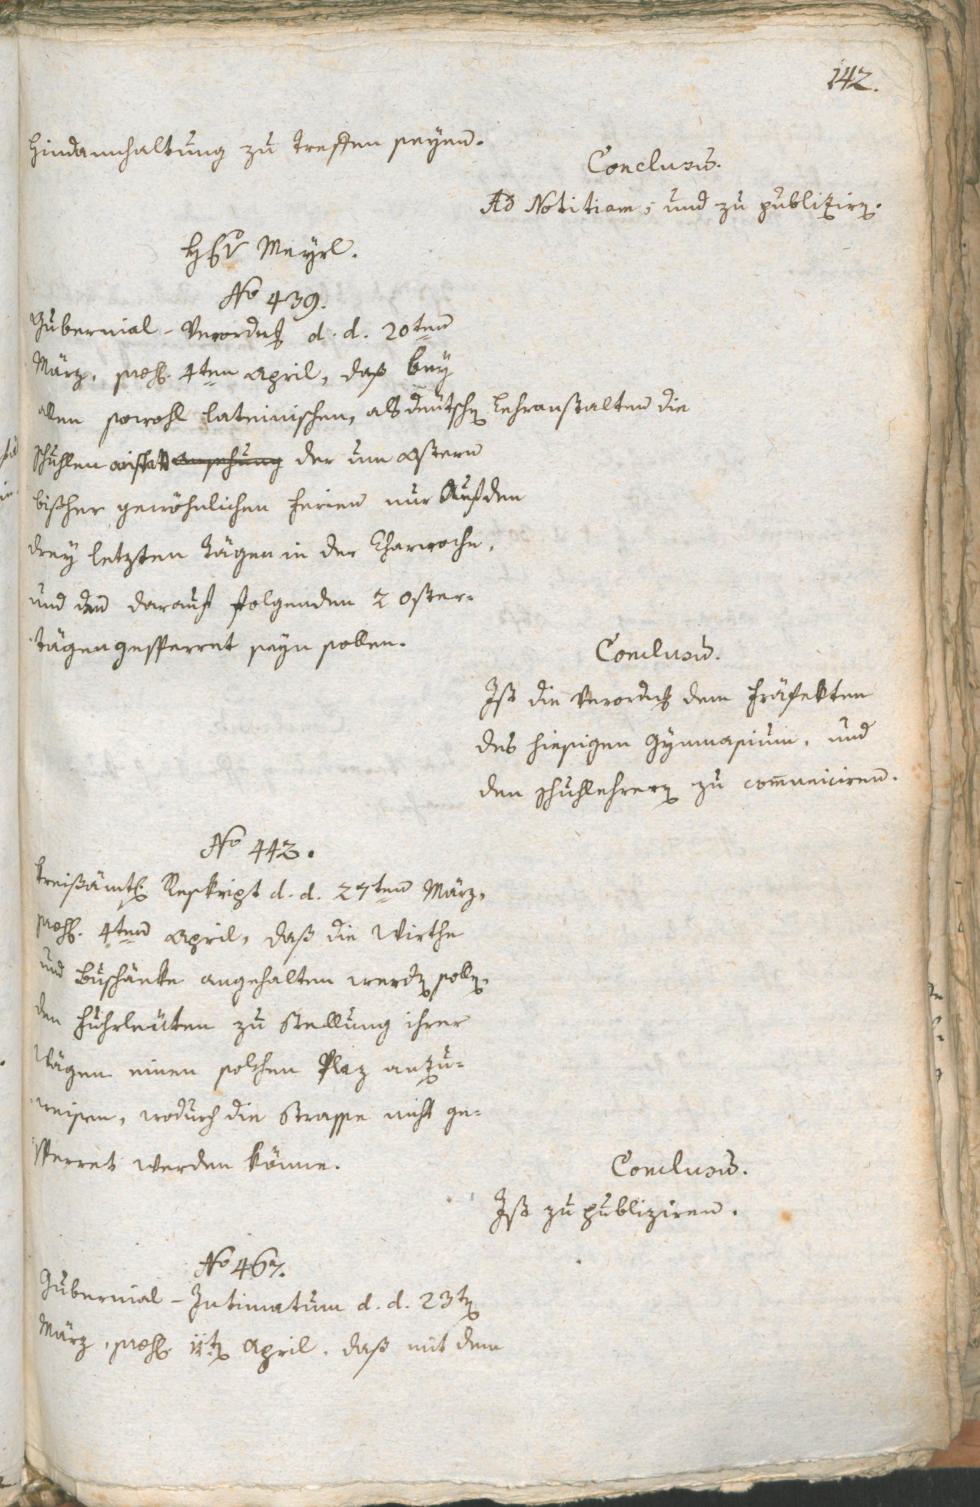 142.
Hindannhaltung zu treffen seyen.
Conclusũ.
Ad Notitiam, und zu publizirn.
Hr Meyrl.
No 439.
Gubernial-Verordng d. d. 20ten
März, præs. 4ten April, daß bey
allen sowohl lateinischen, als deutschen Lehranstalten die
Schuhlen anstatt der um Ostern
bisher gewöhnlichen Ferien nur Auf den
drey letzten Tägen in der Charwoche,
und den darauf folgenden 2 Oster-
tägen gesperret seyn sollen.
Conclusũ.
Ist die Verordng dem Präfekten
des hiesigen Gymnasium, und
den Schuhllehrern zu com̅uniciren.
No 443.
Kreisämtl. Reskript d. d. 27ten März,
præs. 4ten April, daß die Wirthe
und Buschänke angehalten werden sollen,
den Fuhrleuten zu Stellung ihrer
Wägen einen solchen Plaz anzu-
weisen, wodurch die Strasse nicht ge-
sperret werden könne.
Conclusũ.
Ist zu publiziren.
No 467.
Gubernial-Intimatum d. d. 23tn
März, præs. 11tn April, daß mit dem